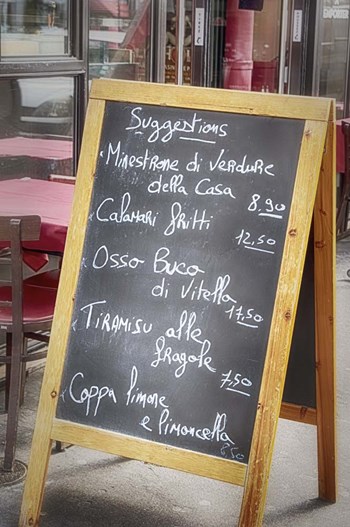 Suggestions
Minestrone di Verdure
della Casa 8,90
Calamari fritti
12,50
Osso Buco
di Vitella
17,50
Tiramisu alle
fragole
7,50
Coppa limone
e limoncella
8,50
EMPORTER